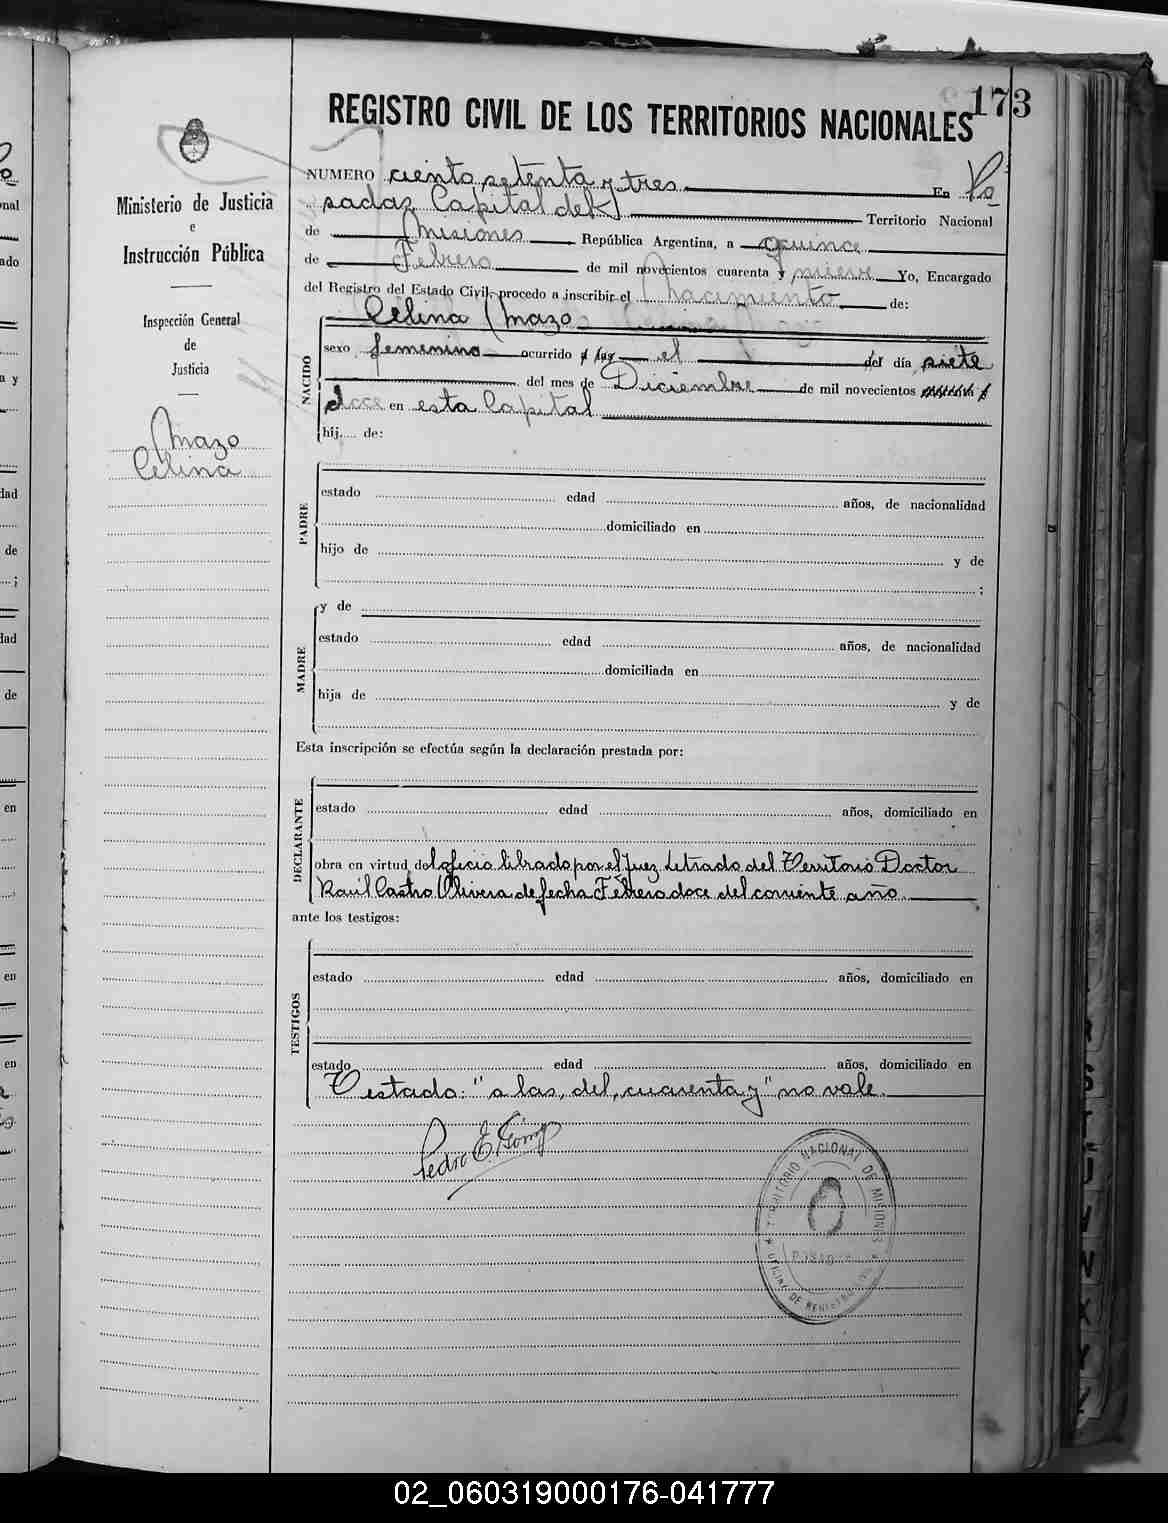 173
REGISTRO CIVIL DE LOS TERRITORIOS NACIONALES
Ministerio de Justicia
e
Instrucción Pública
Inspección General
de
Justicia
Mazo
Celina
NUMERO ciento setenta y tres En Po
sadas Capital del Territorio Nacional
de Misiones República Argentina, a quince
de Febrero de mil novecientos cuarenta y nueve Yo, Encargado
del Registro del Estado Civil, procedo a inscribir el Nacimiento de:
Celina Mazo
NACIDO
sexo femenino ocurrido a las el del día siete
del mes de Diciembre de mil novecientos cuarenta y
doce en esta Capital
hij.... de:
PADRE
estado edad años, de nacionalidad
domiciliado en
hijo de y de
;
MADRE
y de
estado edad años, de nacionalidad
domiciliada en
hija de y de
Esta inscripción se efectúa según la declaración prestada por:
DECLARANTE
estado edad años, domiciliado en
obra en virtud del oficio librado por el Juez Letrado del Territorio Doctor
Raúl Castro Olivera de fecha Febrero doce del corriente año
ante los testigos:
TESTIGOS
estado edad años, domiciliado en
estado edad años, domiciliado en
Testado: "a las, del, cuarenta y" no vale.
Pedro E.
TERRITORIO NACIONAL DE MISIONES
POSADAS
OFICINA DE
02_060319000176-041777